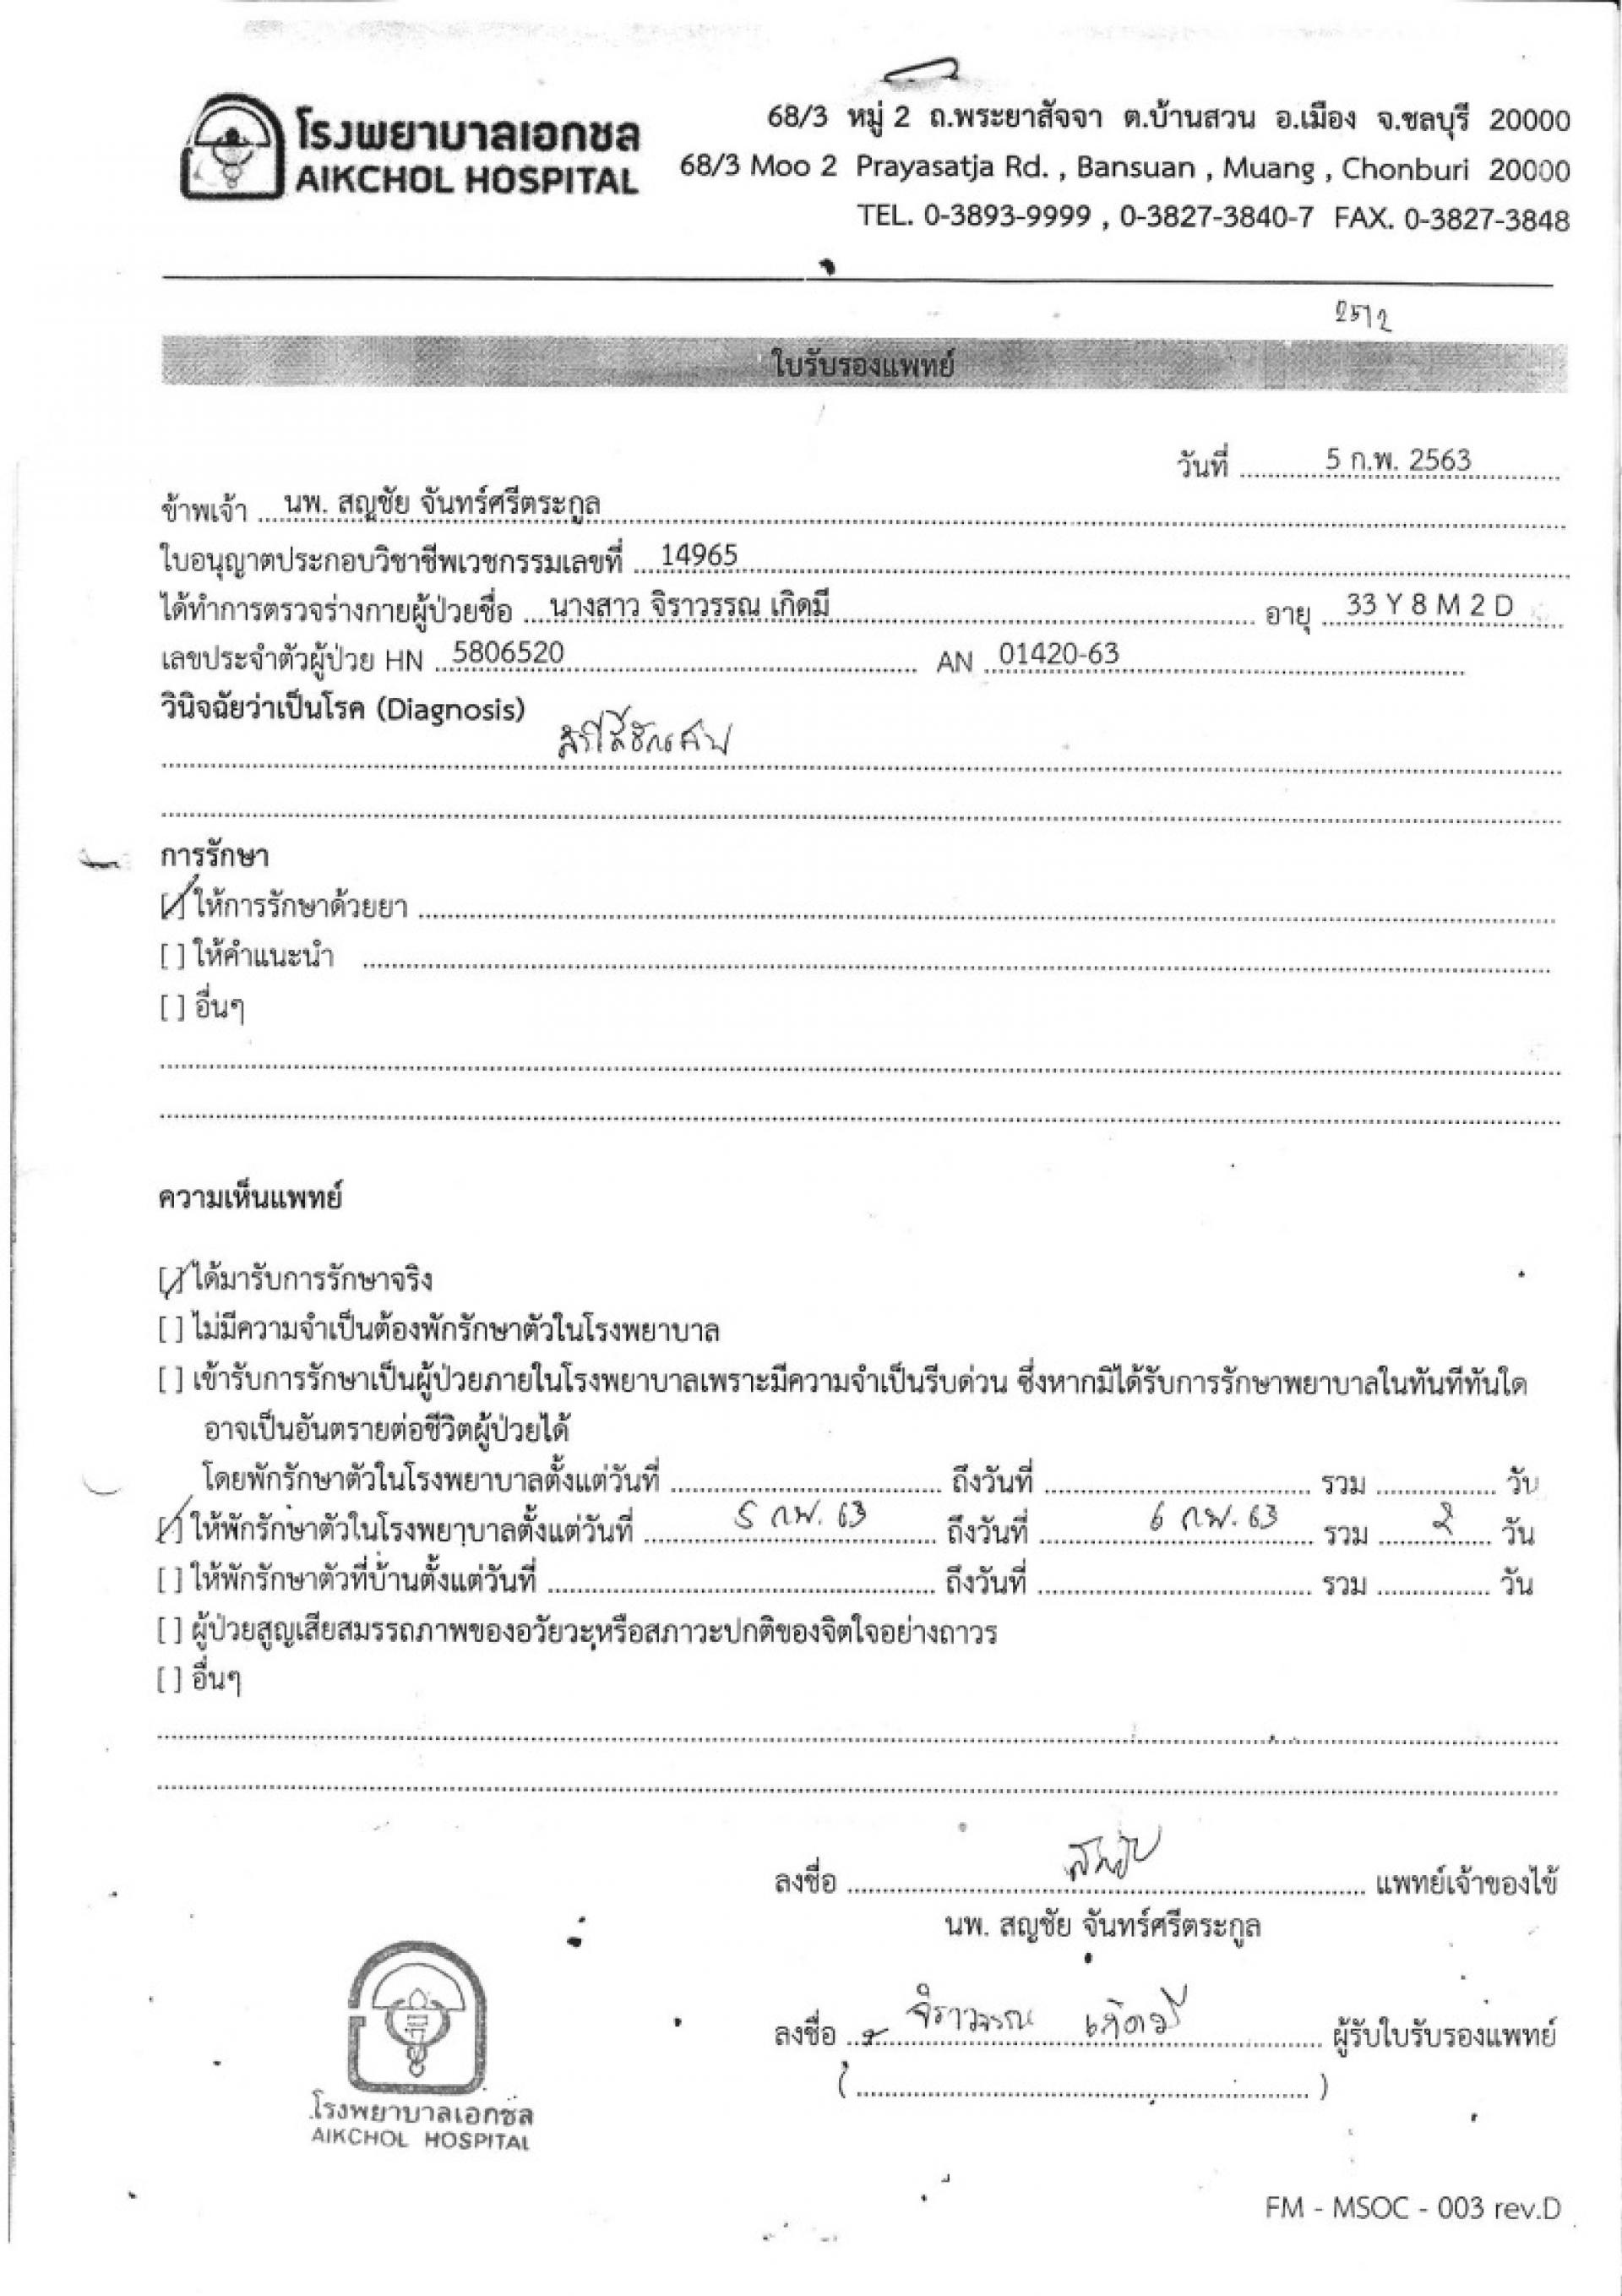 โรงพยาบาลเอกชล
AIKCHOL HOSPITAL
68/3 หมู่ 2 ถ.พระยาสัจจา ต.บ้านสวน อ.เมือง จ.ชลบุรี 20000
68/3 Moo 2 Prayasatja Rd. , Bansuan , Muang , Chonburi 20000
TEL. 0-3893-9999 , 0-3827-3840-7 FAX. 0-3827-3848
2512
ใบรับรองแพทย์
วันที่ 5 ก.พ. 2563
ข้าพเจ้า นพ. สญชัย จันทร์ศรีตระกูล
ใบอนุญาตประกอบวิชาชีพเวชกรรมเลขที่ 14965
ได้ทำการตรวจร่างกายผู้ป่วยชื่อ นางสาว จิราวรรณ เกิดมี อายุ 33 Y 8 M 2 D
เลขประจำตัวผู้ป่วย HN 5806520 AN 01420-63
วินิจฉัยว่าเป็นโรค (Diagnosis)
ลำไส้อักเสบ
การรักษา
[/] ให้การรักษาด้วยยา
[ ] ให้คำแนะนำ
[ ] อื่นๆ
ความเห็นแพทย์
[/] ได้มารับการรักษาจริง
[ ] ไม่มีความจำเป็นต้องพักรักษาตัวในโรงพยาบาล
[ ] เข้ารับการรักษาเป็นผู้ป่วยภายในโรงพยาบาลเพราะมีความจำเป็นรีบด่วน ซึ่งหากมิได้รับการรักษาพยาบาลในทันทีทันใด
อาจเป็นอันตรายต่อชีวิตผู้ป่วยได้
โดยพักรักษาตัวในโรงพยาบาลตั้งแต่วันที่ ถึงวันที่ รวม วัน
[/] ให้พักรักษาตัวในโรงพยาบาลตั้งแต่วันที่ 5 กพ. 63 ถึงวันที่ 6 กพ. 63 รวม 2 วัน
[ ] ให้พักรักษาตัวที่บ้านตั้งแต่วันที่ ถึงวันที่ รวม วัน
[ ] ผู้ป่วยสูญเสียสมรรถภาพของอวัยวะหรือสภาวะปกติของจิตใจอย่างถาวร
[ ] อื่นๆ
ลงชื่อ แพทย์เจ้าของไข้
นพ. สญชัย จันทร์ศรีตระกูล
ลงชื่อ จิราวรรณ เกิดมี ผู้รับใบรับรองแพทย์
( )
โรงพยาบาลเอกชล
AIKCHOL HOSPITAL
FM - MSOC - 003 rev.D